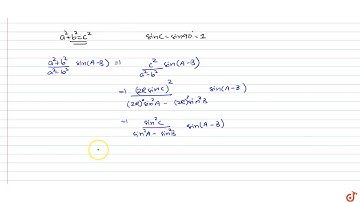 a²+b²=c² sinC = sin90° = 1
a²+b²/a²-b² sin(A-B) => c²/a²-b² sin(A-B)
=> (2R sinC)²/(2R)²sin²A - (2R)²sin²B sin(A-B)
=> sin²C/sin²A - sin²B sin(A-B)